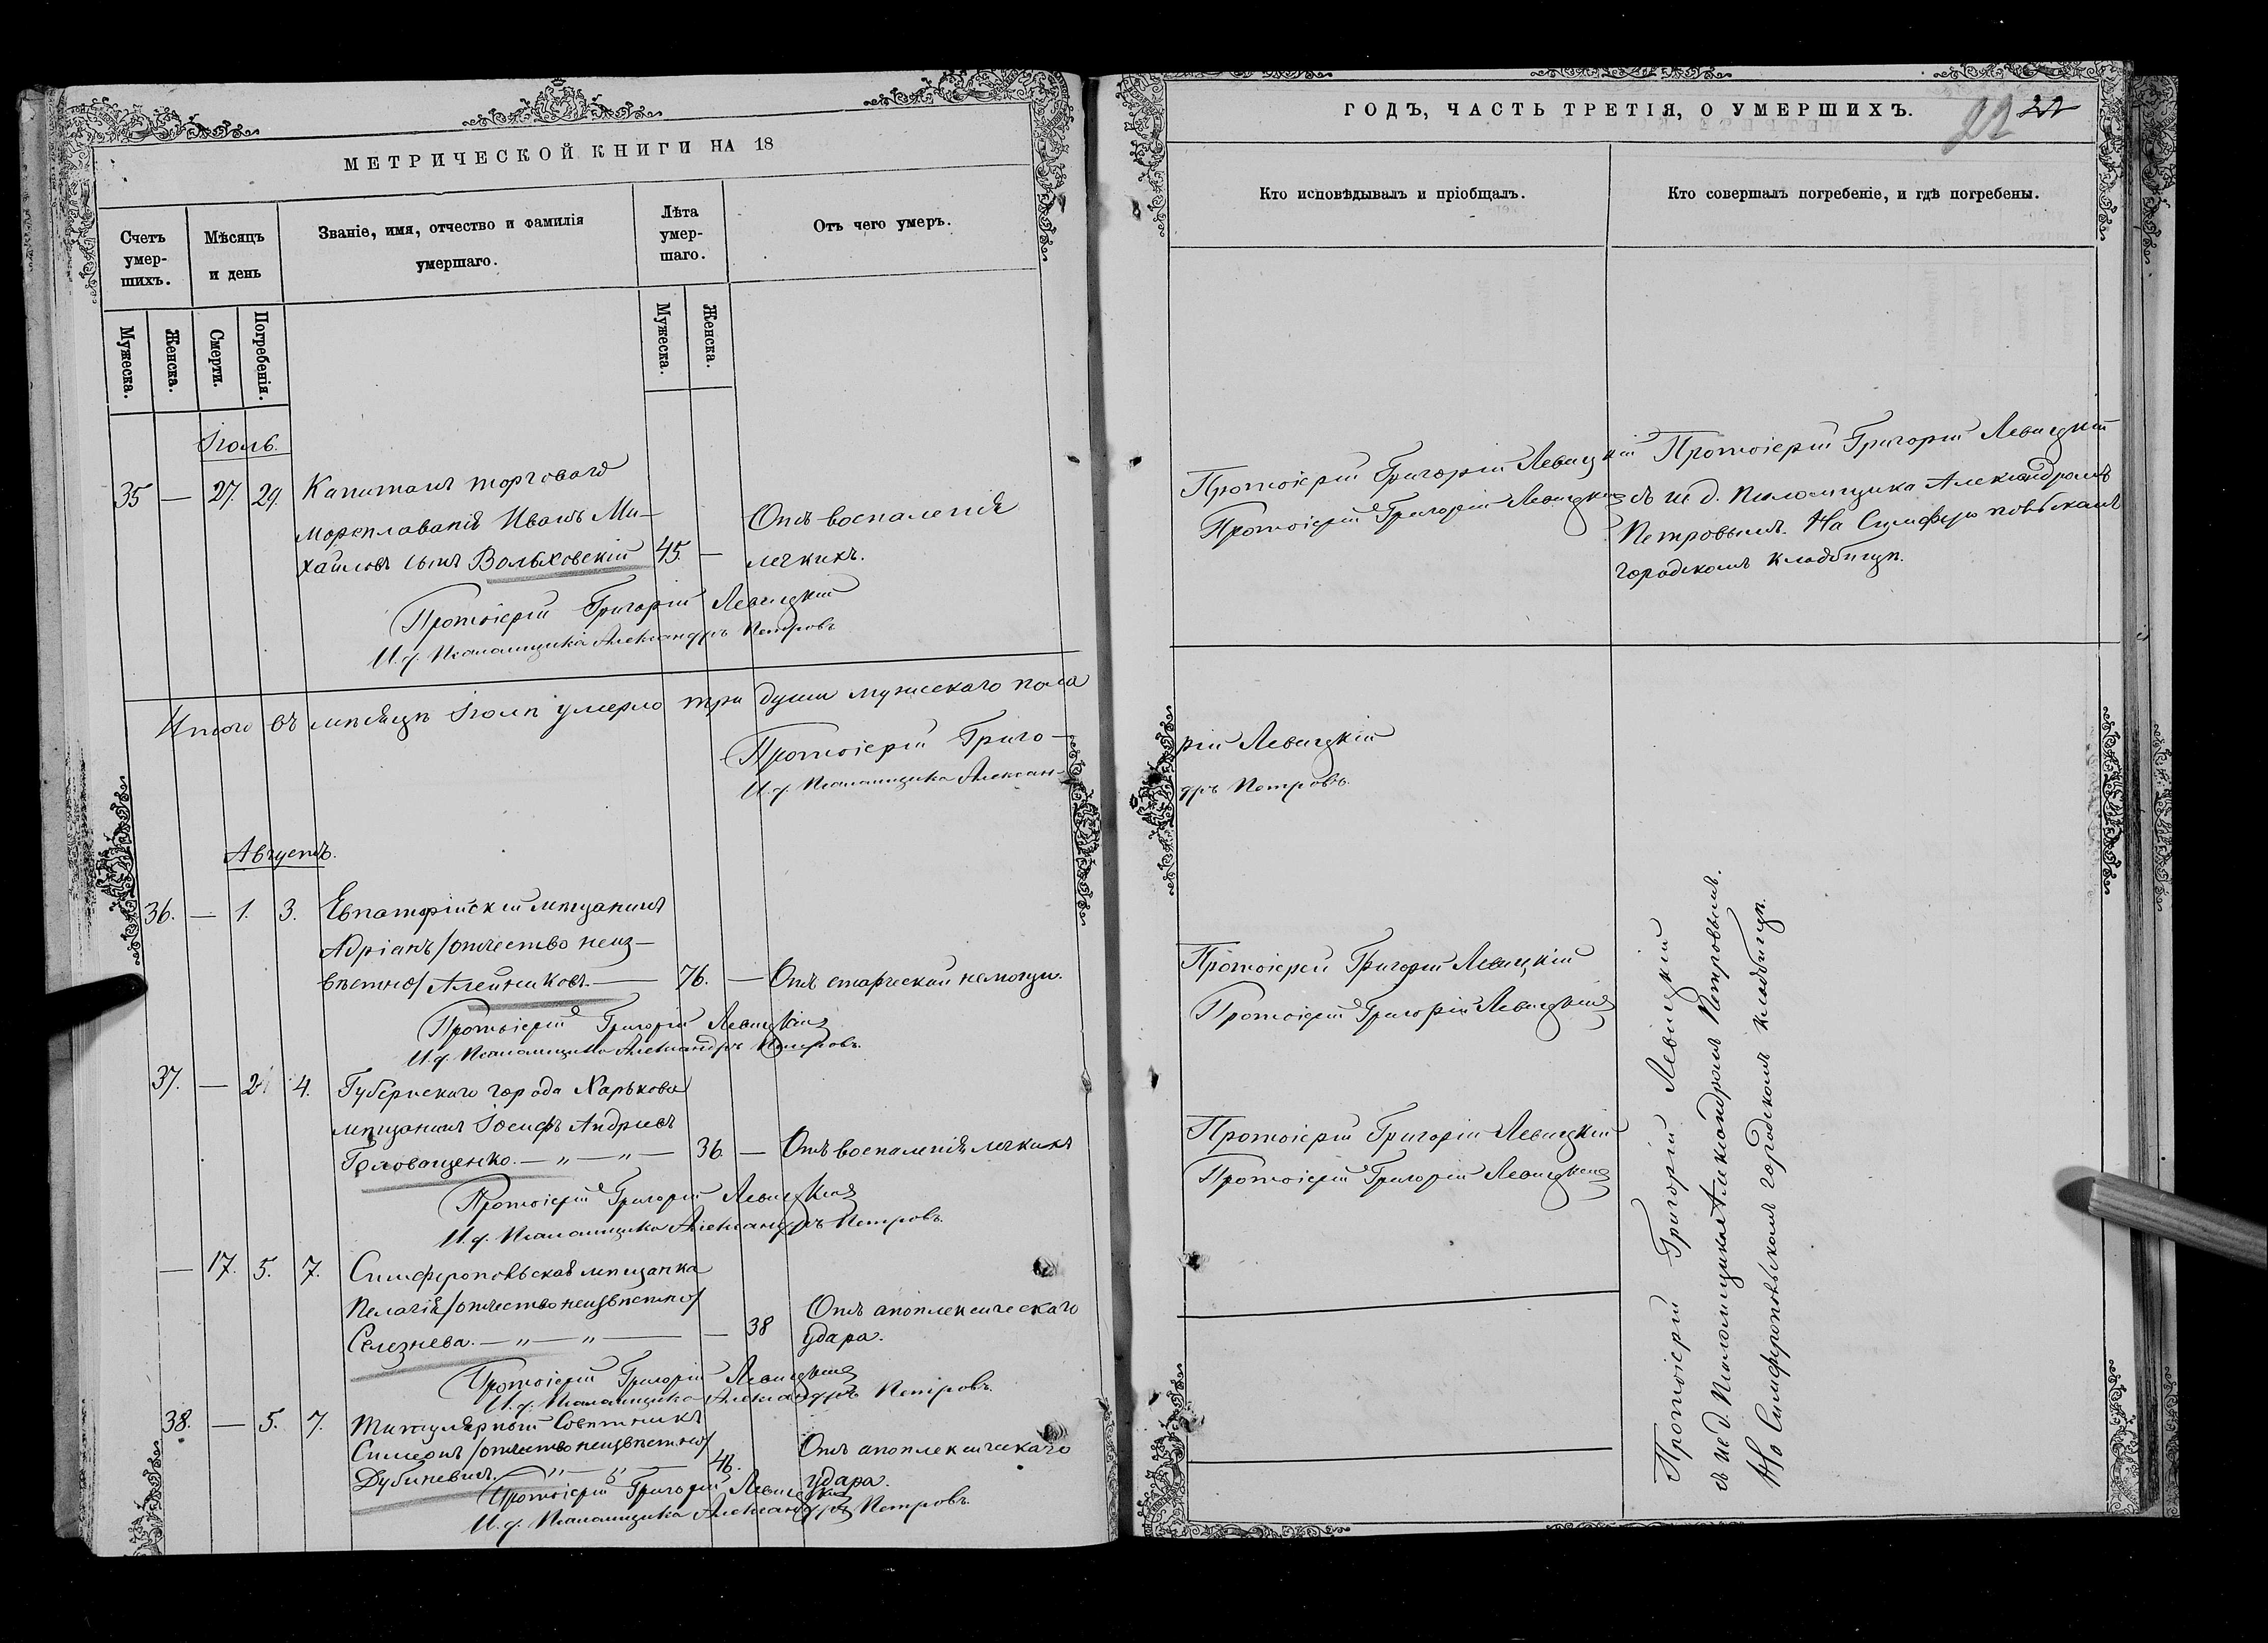 МЕТРИЧЕСКОЙ КНИГИ НА 18
Счетъ умершихъ.
Мѣсяцъ и день
Званіе, имя, отчество и фамилія
умершаго.
Лѣта умершаго.
Отъ чего умеръ.
Мужеска.
Женска.
Смерти.
Погребенія.
Мужеска.
Женска.
Іюль.
35 — 27. 29. Капитанъ торговаго
мореплаванія Иванъ Ми-
хайловъ сынъ Вольховскій 45. —
Отъ воспаленія
легкихъ.
Протоіерей Григорій Левицкій
И. д. Псаломщика Александръ Петровъ
Итого въ мѣсяцѣ Іюлѣ умерло три души мужескаго пола
Протоіерей Григо-
И. д. Псаломщика Алексан-
Августъ.
36. — 1. 3. Евпаторійскій мѣщанинъ
Адріанъ /отчество неиз-
вѣстно/ Алейниковъ. — 76. — Отъ старческой немощи.
Протоіерей Григорій Левицкій
И. д. Псаломщика Александръ Петровъ.
37. — 2. 4. Губернскаго города Харькова
мѣщанинъ Іосифъ Андреевъ
Головащенко. — „ — „ — 36. — Отъ воспаленія легкихъ
Протоіерей Григорій Левицкій
И. д. Псаломщика Александръ Петровъ.
— 17. 5. 7. Симферопольская мѣщанка
Пелагія /отчество неизвѣстно/
Селезнева. — „ — „ — — 38
Отъ апоплексическаго
удара.
Протоіерей Григорій Левицкій
И. д. Псаломщика Александръ Петровъ.
38. — 5. 7. Титулярный Совѣтникъ
Симеонъ /отчество неизвѣстно/
Дубиневичъ. — „ — „ — 46.
Отъ апоплексическаго
удара.
Протоіерей Григорій Левицкій
И. д. Псаломщика Александръ Петровъ.
ГОДЪ, ЧАСТЬ ТРЕТІЯ, О УМЕРШИХЪ.
22
32
Кто исповѣдывалъ и пріобщалъ.
Кто совершалъ погребеніе, и гдѣ погребены.
Протоіерей Григорій Левицкій
Протоіерей Григорій Левицкій
Протоіерей Григорій Левицкій
съ и. д. Псаломщика Александромъ
Петровымъ. На Симферопольскомъ
городскомъ кладбищѣ.
рій Левицкій
дръ Петровъ.
Протоіерей Григорій Левицкій
Протоіерей Григорій Левицкій
Протоіерей Григорій Левицкій
Протоіерей Григорій Левицкій
Протоіерей Григорій Левицкій
съ и. д. Псаломщика Александромъ Петровымъ.
На Симферопольскомъ городскомъ кладбищѣ.